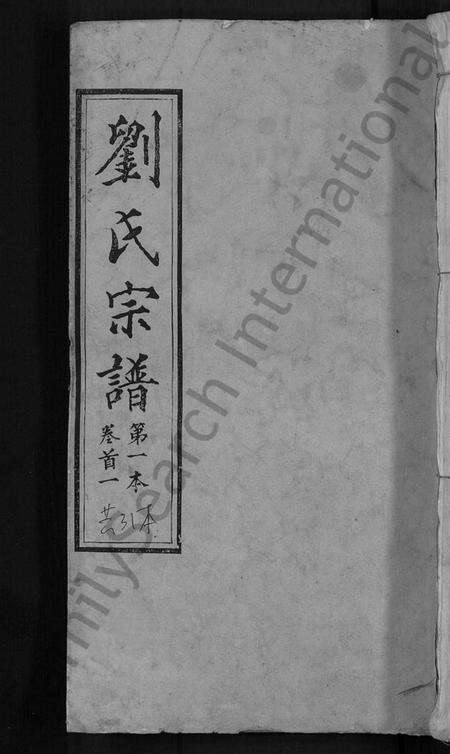 劉氏宗譜
第一本
卷首一
共31本
FamilySearch International